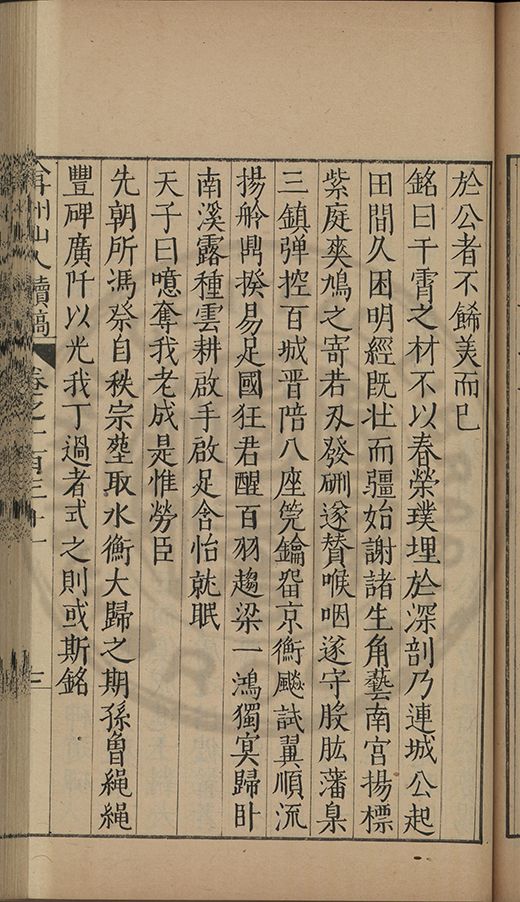 於公者不餙美而已
銘曰干霄之材不以春榮璞埋於深剖乃連城公起
田間久困明經既壮而彊始謝諸生角藝南宮揚標
紫庭爽鳩之寄若刃發硎遂賛喉咽遂守股肱藩臬
三鎮弹控百城晋陪八座筦鑰畱京衡颷試翼順流
揚舲鼎揆易足國狂君醒百羽趨梁一鴻獨㝠歸卧
南溪露種雲耕啟手啟足含怡就眠
天子曰噫奪我老成是惟勞臣
先朝所馮祭自秩宗塟取水衡大歸之期孫曾䋲䋲
豐碑廣阡以光我丁過者式之則或斯銘
弇州山人續稿 卷之一百三十一 三